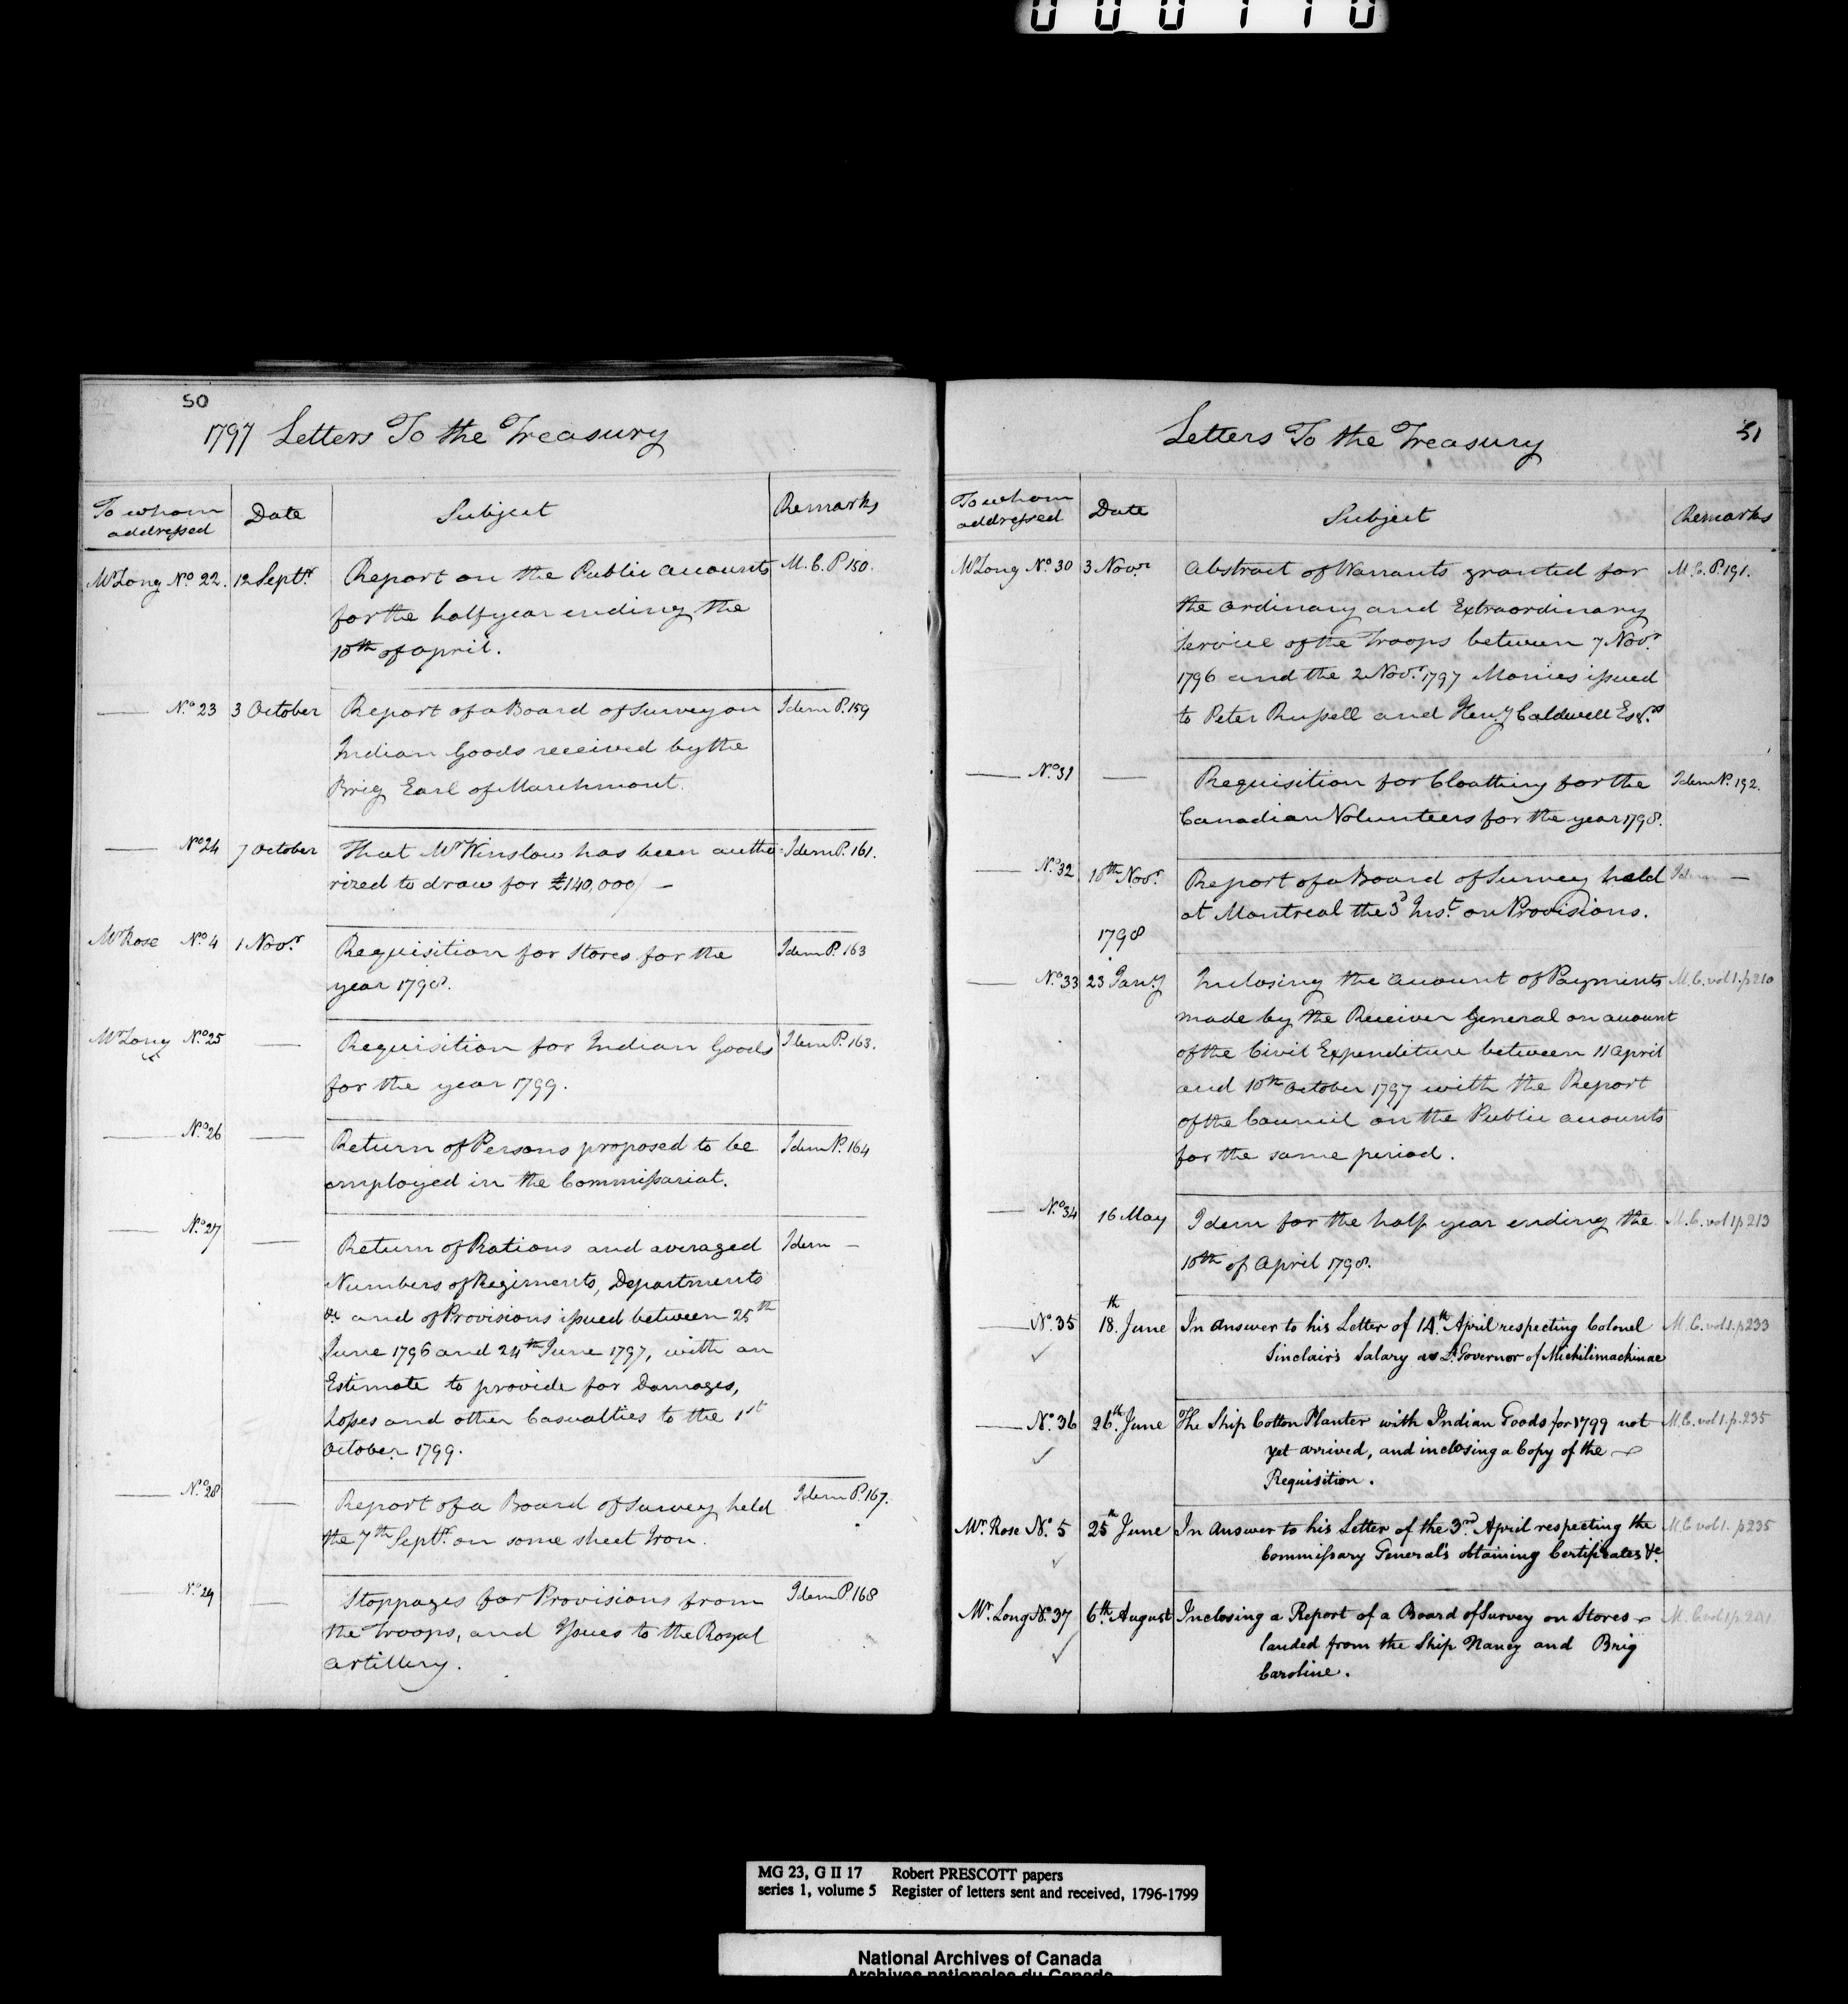 000110
50
1797 Letters To the Treasury
To whom addressed
Date
Subject
Remarks
Mr Long No. 22. 12 Septr. Report on the Public accounts M. C. P 150.
for the half year ending the
10th of april.
—— No. 23 3 October Report of a Board of Survey on Idem P. 159
Indian Goods received by the
Brig Earl of Marchmont.
—— No 24 7 October That Mr Winslow has been autho- Idem P. 161.
rized to draw for £140,000/ —
Mr Rose No. 4 1 Novr. Requisition for Stores for the Idem P. 163
year 1798.
Mr Long No. 25 —— Requisition for Indian Goods Idem P. 163.
for the year 1799.
—— No. 26 —— Return of Persons proposed to be Idem P. 164
employed in the Commissariat.
—— No. 27 —— Return of Rations and averaged Idem —
Numbers of Regiments, Departments
&c and of Provisions issued between 25th
June 1796 and 24th June 1797, with an
Estimate to provide for Damages,
Losses and other Casualties to the 1st
October 1799.
—— No. 28 —— Report of a Board of Survey held Idem P. 167.
the 7th Septr. on some sheet Iron.
—— No. 29 —— Stoppages for Provisions from Idem P. 168
the Troops, and Issues to the Royal
artillery.
51
Letters To the Treasury
To whom addressed
Date
Subject
Remarks
Mr Long No. 30 3 Novr. Abstract of Warrants granted for M. C. P. 191.
the ordinary and Extraordinary
Service of the Troops between 7 Novr.
1796 and the 2 Novr. 1797 Monies issued
to Peter Russell and Henry Caldwell Esqrs.
—— No. 31 —— Requisition for Cloathing for the Idem P. 192.
Canadian Volunteers for the year 1798.
—— No. 32 10th Novr. Report of a Board of Survey held Idem —
at Montreal the 3d Inst. on Provisions.
1798
—— No. 33 23 Jany Inclosing the account of Payments M. C. vol 1. p 210
made by the Receiver General on account
of the Civil Expenditure between 11 April
and 10th October 1797 with the Report
of the Council on the Public accounts
for the same period.
—— No. 34 16 May Idem for the half year ending the M. C. vol 1 p 213
10th of April 1798.
—— No. 35 18th. June In answer to his Letter of 14th. April respecting Colonel M. C. vol 1. p 233
Sinclair's Salary as Lt. Governor of Michilimachinac
—— No. 36 26th. June The Ship Cotton Planter with Indian Goods for 1799 not M. C. vol 1. p. 235
yet arrived, and inclosing a Copy of the
Requisition.
Mr. Rose No. 5 25th June In answer to his Letter of the 3rd. April respecting the M. C vol 1. p 235
Commissary General's obtaining Certificates &c.
Mr. Long No. 37 6th. August Inclosing a Report of a Board of Survey on Stores M. C vol 1 p 241
landed from the Ship Nancy and Brig
Caroline.
MG 23, G II 17 Robert PRESCOTT papers
series 1, volume 5 Register of letters sent and received, 1796-1799
National Archives of Canada
Archives nationales du Canada